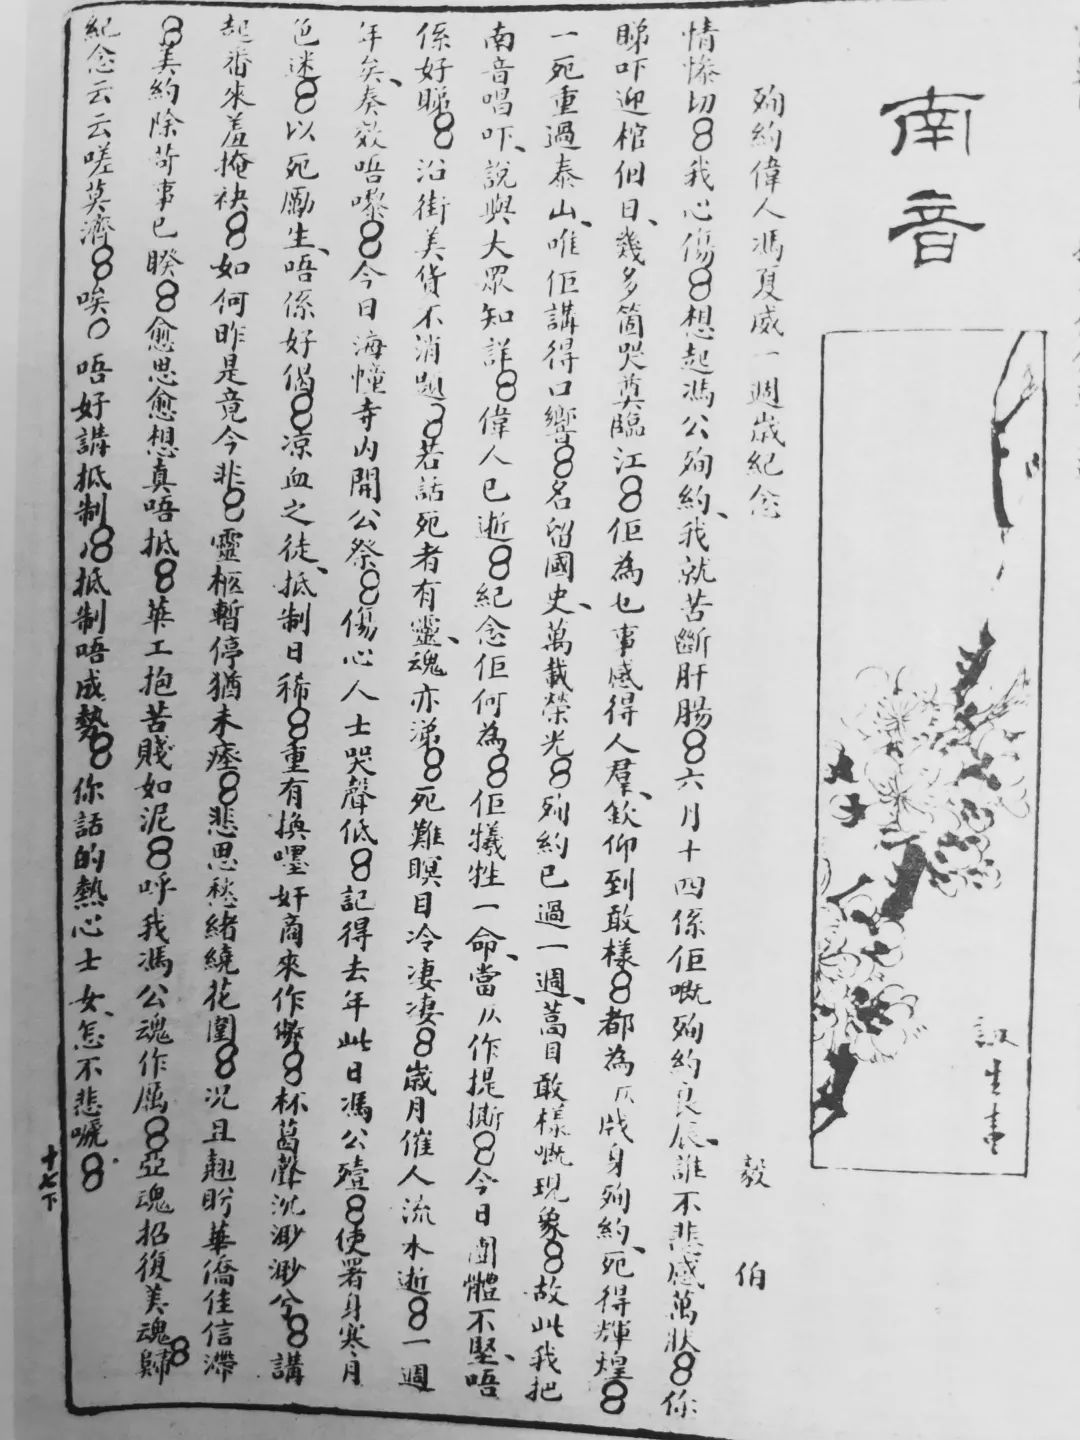 南音
殉約偉人馮夏威一週歲紀念
毅伯
情慘切8我心傷8想起馮公殉約、我就苦斷肝腸8六月十四係佢嘅殉約良辰、誰不悲感萬狀8你
睇吓迎棺個日、幾多箇哭奠臨江8佢為乜事感得人羣、欽仰到敢樣8都為仄戕身殉約、死得輝煌8
一死重過泰山、唯佢講得口響8名留國史、萬載榮光8殉約已過一週、蒿目敢樣嘅現象8故此我把
南音唱吓、說與大眾知詳8偉人已逝8紀念佢何為8佢犧牲一命、當仄作提撕8今日團體不堅、唔
係好睇8沿街美貨不消題8若話死者有靈、魂亦涕8死難瞑目冷凄凄8歲月催人流水逝8一週
年矣、奏效唔嚟8今日海幢寺內開公祭8傷心人士哭聲低8記得去年此日馮公殪8使署身寒月
色迷8以死勵生、唔係好偈8凉血之徒、抵制日稀8重有換嘜奸商來作弊8杯葛聲沉渺渺兮8講
起番來羞掩袂8如何昨是竟今非8靈柩暫停猶未瘞8悲思愁緒繞花圍8況且翹盼華僑佳信滯
8美約除苛事已睽8愈思愈想真唔抵8華工抱苦賤如泥8呼我馮公魂作厲8亞魂招復美魂歸8
紀念云云嗟莫濟8唉〇唔好講抵制8抵制唔成勢8你話的熱心士女、怎不悲嘶8
十七下